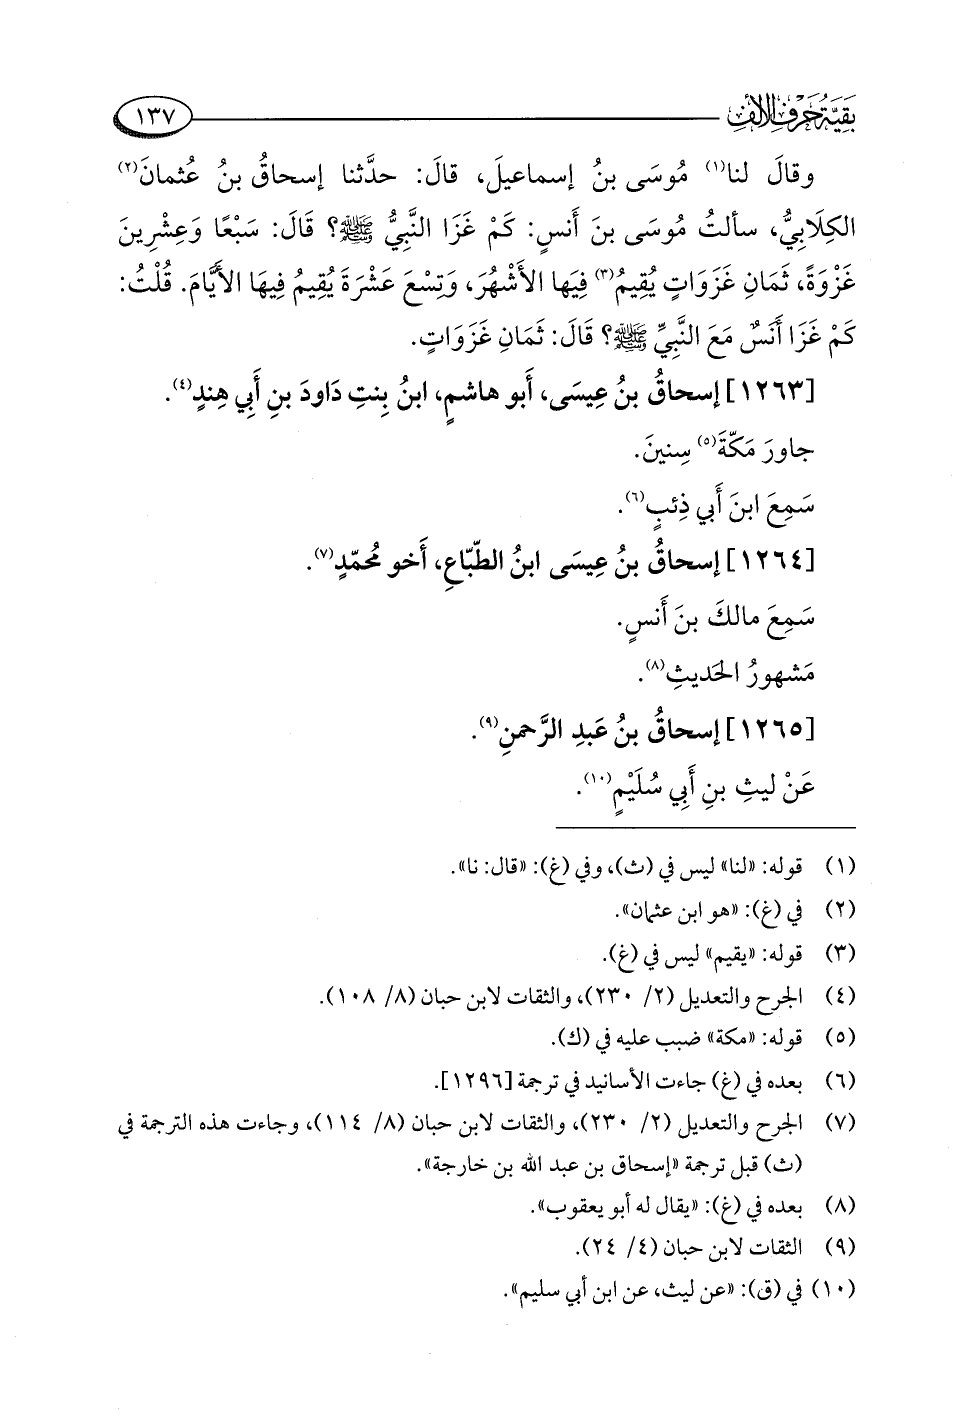 بقية حرف الألف
١٣٧
وقالَ لنا(١) مُوسَى بنُ إسماعيلَ، قالَ: حدَّثنا إسحاقُ بنُ عُثمانَ(٢)
الكِلَابِيُّ، سألتُ مُوسَى بنَ أنسٍ: كَمْ غَزَا النَّبِيُّ ﷺ؟ قَالَ: سَبْعًا وَعِشْرِينَ
غَزْوَةً، ثَمَانِ غَزَوَاتٍ يُقِيمُ(٣) فِيَها الأَشْهُرَ، وَتِسْعَ عَشْرَةَ يُقِيمُ فِيهَا الأَيَّامَ. قُلْتُ:
كَمْ غَزَا أَنَسٌ مَعَ النَّبِيِّ ﷺ؟ قَالَ: ثَمَانِ غَزَوَاتٍ.
[١٢٦٣] إسحاقُ بنُ عِيسَى، أَبو هاشمٍ، ابنُ بِنتِ دَاودَ بنِ أَبي هِندٍ(٤).
جاورَ مَكّةَ(٥) سِنينَ.
سَمِعَ ابنَ أَبي ذِئبٍ(٦).
[١٢٦٤] إسحاقُ بنُ عِيسَى ابنُ الطّبّاعِ، أَخو مُحمّدٍ(٧).
سَمِعَ مالكَ بنَ أَنسٍ.
مَشهورُ الحَديثِ(٨).
[١٢٦٥] إسحاقُ بنُ عَبدِ الرَّحمنِ(٩).
عَنْ ليثِ بنِ أَبِي سُلَيْمٍ(١٠).
(١) قوله: «لنا» ليس في (ث)، وفي (غ): «قال: نا».
(٢) في (غ): «هو ابن عثمان».
(٣) قوله: «يقيم» ليس في (غ).
(٤) الجرح والتعديل (٢/ ٢٣٠)، والثقات لابن حبان (٨/ ١٠٨).
(٥) قوله: «مكة» ضبب عليه في (ك).
(٦) بعده في (غ) جاءت الأسانيد في ترجمة [١٢٩٦].
(٧) الجرح والتعديل (٢/ ٢٣٠)، والثقات لابن حبان (٨/ ١١٤)، وجاءت هذه الترجمة في
(ث) قبل ترجمة «إسحاق بن عبد الله بن خارجة».
(٨) بعده في (غ): «يقال له أبو يعقوب».
(٩) الثقات لابن حبان (٤/ ٢٤).
(١٠) في (ق): «عن ليث، عن ابن أبي سليم».